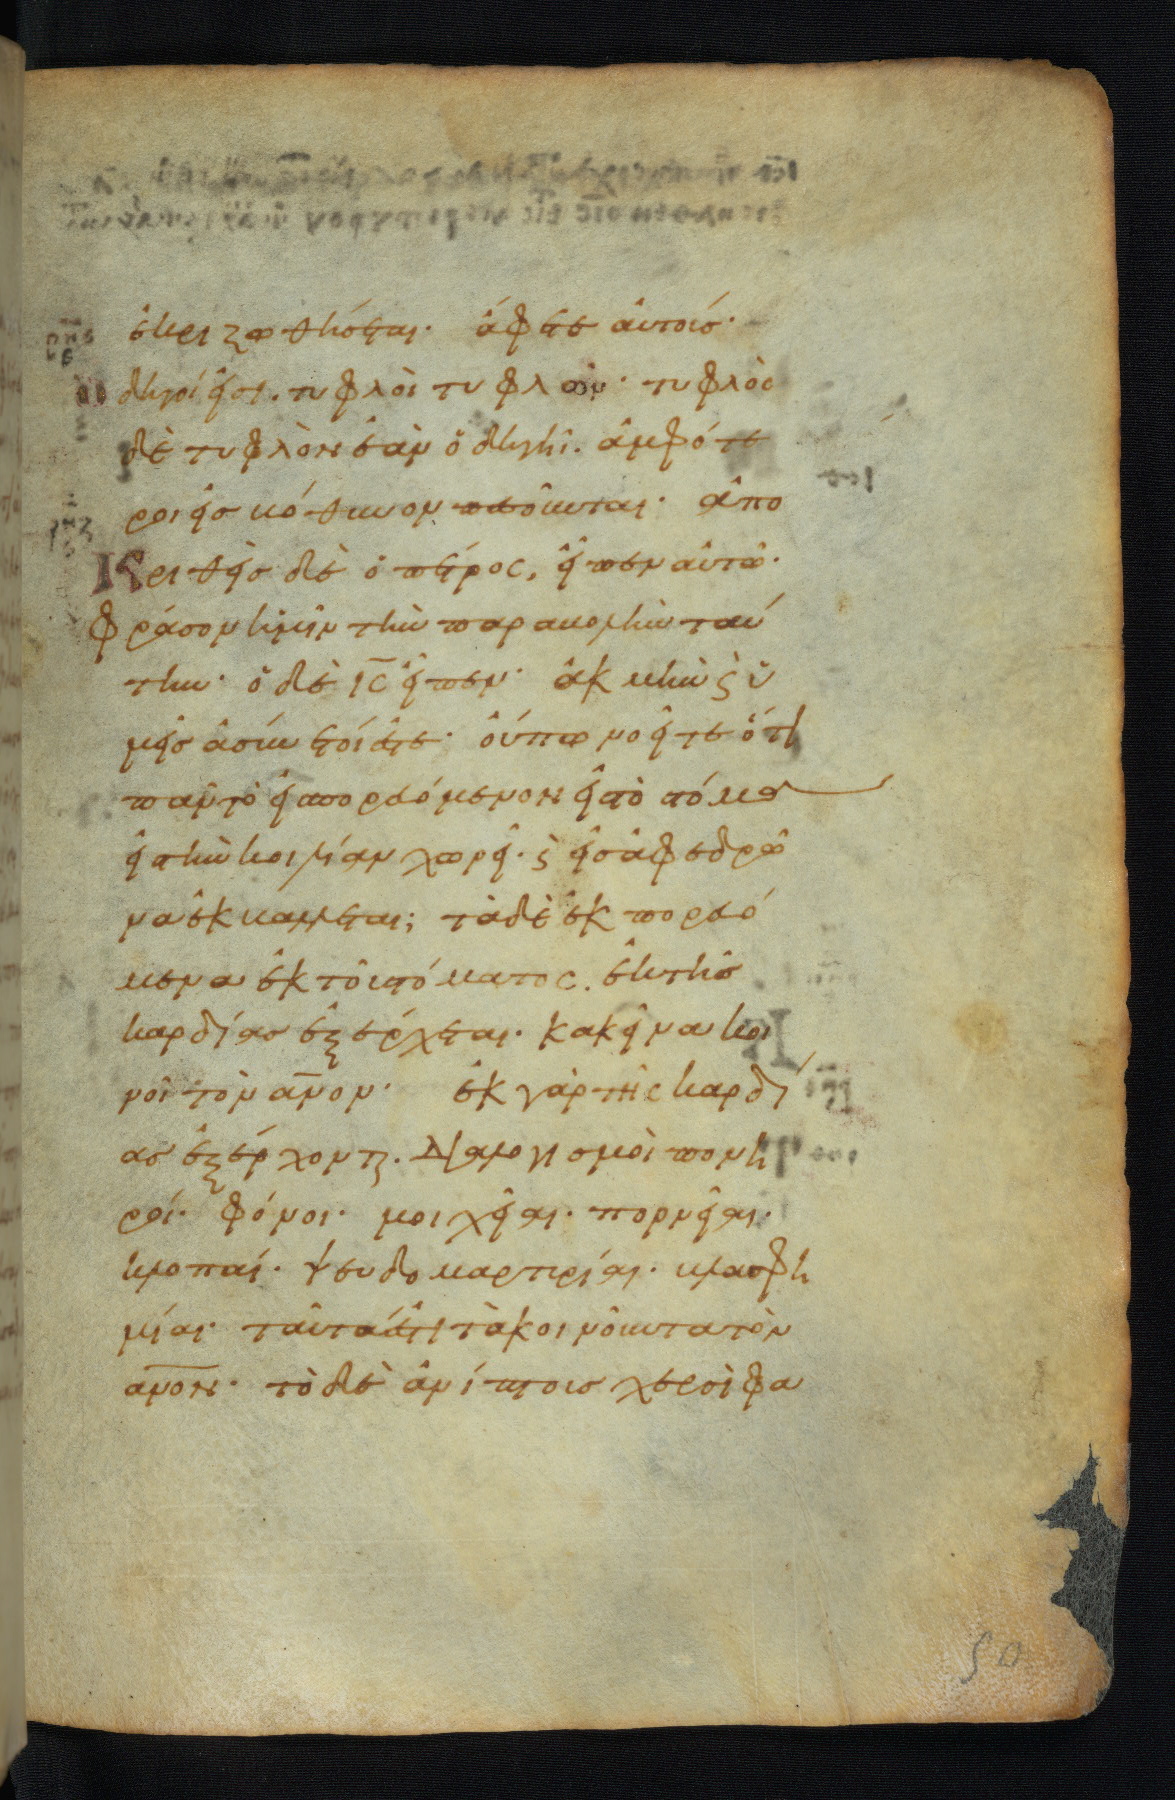 ἐκριζωθήσεται· ἄφετε αὐτοὺς·
ὁδηγοί εἰσι. τυφλοὶ τυφλῶν· τυφλὸς
δὲ τυφλὸν ἐὰν ὁδηγῆ. ἀμφότε
ροι εἰς βόθυνον πεσοῦνται· ἀπο
κριθεὶς δὲ ὁ πέτρος, εἶπεν αὐτῶ·
φράσον ἡμῖν τὴν παραβολὴν ταύ
την· ὁ δὲ ις εἶπεν· ἀκμὴν ϗ ὑ
μεῖς ἀσύνετοί ἐστε· οὔπω νοεῖτε ὅτι
πᾶν τὸ εἰσπορευόμενον εἰς τὸ στόμα
εἰς τὴν κοιλίαν χωρεῖ· ϗ εἰς ἀφεδρῶ
να ἐκβάλλεται; τὰ δὲ ἐκπορευό
μενα ἐκ τοῦ στόματος. ἐκ τῆς
καρδίας ἐξέρχεται. κακεῖνα κοι
νοῖ τὸν ανον· ἐκ γὰρ τῆς καρδί
ας ἐξέρχονται. διαλογισμοὶ πονη
ροί· φόνοι· μοιχεῖαι· πορνεῖαι·
κλοπαί· ψευδομαρτυρίαι· βλασφη
μίαι· ταῦτά ἐστι τὰ κοινοῦντα τὸν
ανον· τὸ δὲ ἀνίπτοις χερσὶ φα
90